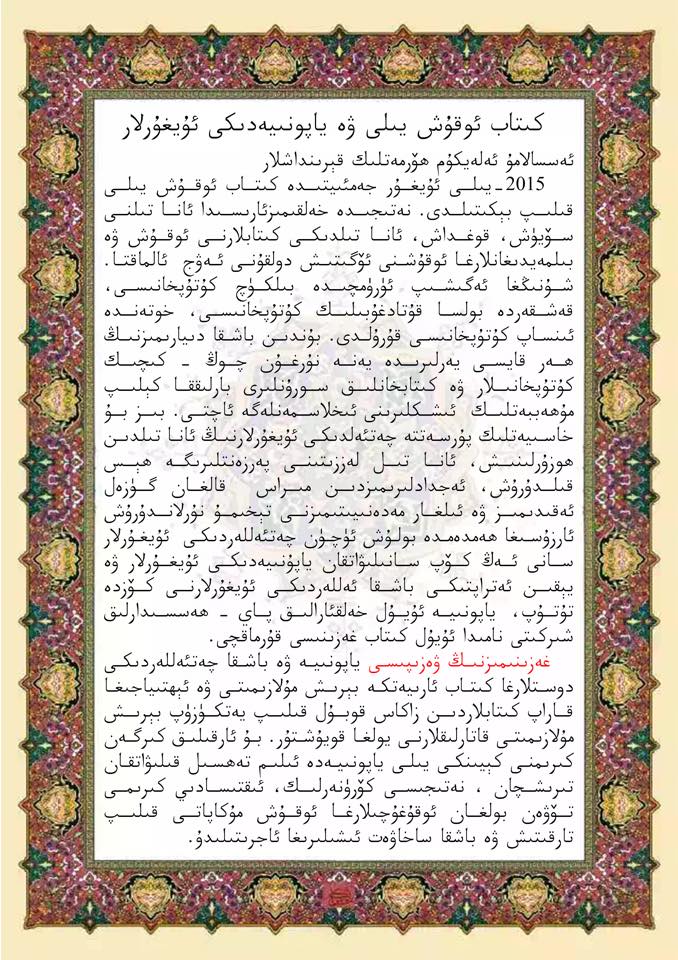 كىتاب ئوقۇش يىلى ۋە ياپونىيەدىكى ئۇيغۇرلار
ئەسسالامۇ ئەلەيكۇم ھۆرمەتلىك قېرىنداشلار
2015-يىلى ئۇيغۇر جەمئىيتىدە كىتاب ئوقۇش يىلى
قىلىپ بېكىتىلدى. نەتىجىدە خەلقىمىزئارىسىدا ئانا تىلنى
سۆيۈش، قوغداش، ئانا تىلدىكى كىتابلارنى ئوقۇش ۋە
بىلمەيدىغانلارغا ئوقۇشنى ئۆگىتىش دولقۇنى ئەۋج ئالماقتا.
شۇنىڭغا ئەگىشىپ ئۈرۈمچىدە بىلكۈچ كۇتۇپخانىسى،
قەشقەردە بولسا قۇتادغۇبىلىك كۇتۇپخانىسى، خوتەندە
ئىنساپ كۇتۇپخانىسى قۇرۇلدى. بۇندىن باشقا دىيارىمىزنىڭ
ھەر قايسى يەرلىرىدە يەنە نۇرغۇن چوڭ - كىچىك
كۇتۇپخانىلار ۋە كىتابخانلىق سورۇنلىرى بارلىققا كېلىپ
مۇھەببەتلىك ئىشىكلىرىنى ئىخلاسمەنلەگە ئاچتى. بىز بۇ
خاسىيەتلىك پۇرسەتتە چەتئەلدىكى ئۇيغۇرلارنىڭ ئانا تىلدىن
ھوزۇرلىنىش، ئانا تىل لەززىتىنى پەرزەنتلىرىگە ھېس
قىلدۇرۇش، ئەجدادلىرىمىزدىن مىراس قالغان گۈزەل
ئەقىدىمىز ۋە ئىلغار مەدەنىيىتىمىزنى تېخىمۇ نۇرلاندۇرۇش
ئارزۇسىغا ھەمدەمدە بولۇش ئۈچۈن چەتئەللەردىكى ئۇيغۇرلار
سانى ئەڭ كۆپ سانىلىۋاتقان ياپۇنىيەدىكى ئۇيغۇرلار ۋە
يېقىن ئەتراپتىكى باشقا ئەللەردىكى ئۇيغۇرلارنى كۆزدە
تۇتۇپ، ياپونىيە ئۇيۇل خەلقئارالىق پاي - ھەسسىدارلىق
شىركىتى نامىدا ئۇيۇل كىتاب غەزىنىسى قۇرماقچى.
غەزىنىمىزنىڭ ۋەزىپىسى ياپونىيە ۋە باشقا چەتئەللەردىكى
دوستلارغا كىتاب ئارىيەتكە بېرىش مۇلازىمىتى ۋە ئېھتىياجىغا
قاراپ كىتابلاردىن زاكاس قوبۇل قىلىپ يەتكۈزۈپ بېرىش
مۇلازىمىتى قاتارلىقلارنى يولغا قويۇشتۇر. بۇ ئارقىلىق كىرگەن
كىرىمنى كېيىنكى يىلى ياپونىيەدە ئىلىم تەھسىل قىلىۋاتقان
تىرىشچان ، نەتىجىسى كۆرۈنەرلىك، ئىقتىسادىي كىرىمى
تۆۋەن بولغان ئوقۇغۇچىلارغا ئوقۇش مۇكاپاتى قىلىپ
تارقىتىش ۋە باشقا ساخاۋەت ئىشلىرىغا ئاجرىتىلىدۇ.